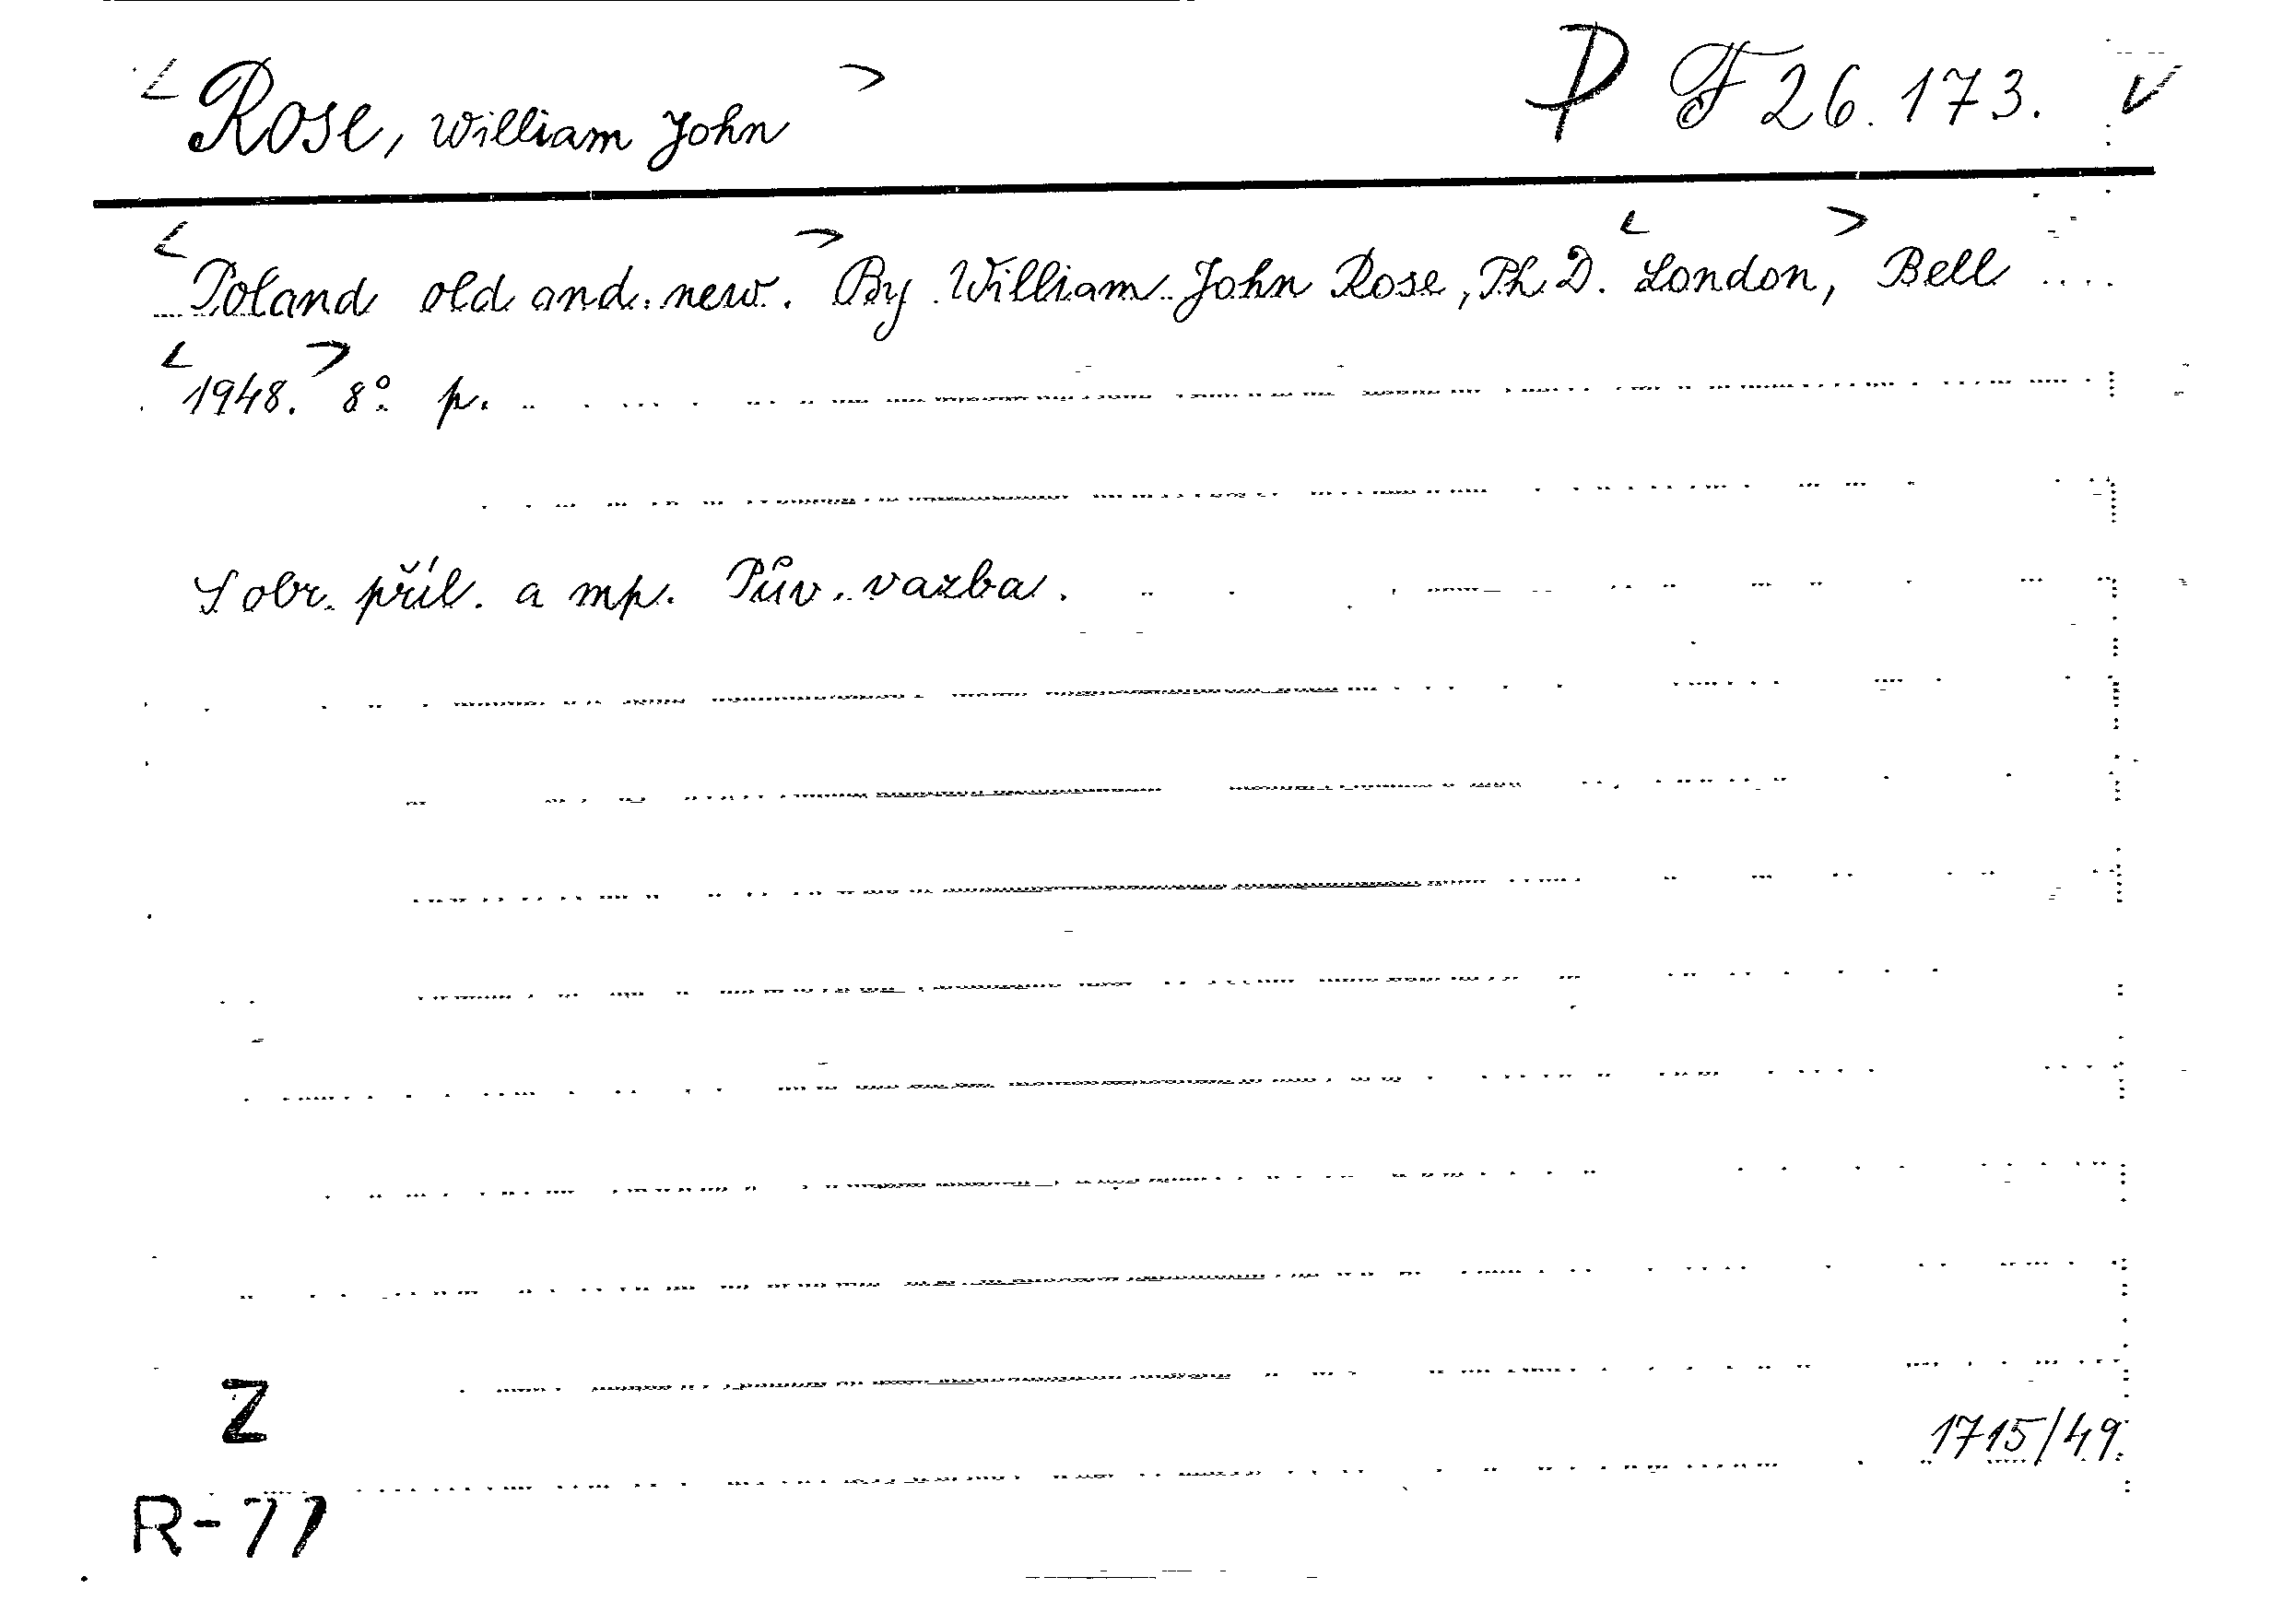 <Rose, William John> P F 26.173. V
<Poland old and new.> By William John Rose, Ph.D. <London,> Bell ....
<1948.> 8° p.
S obr. příl. a mp. Pův. vazba.
Z
1715/49.
R-77